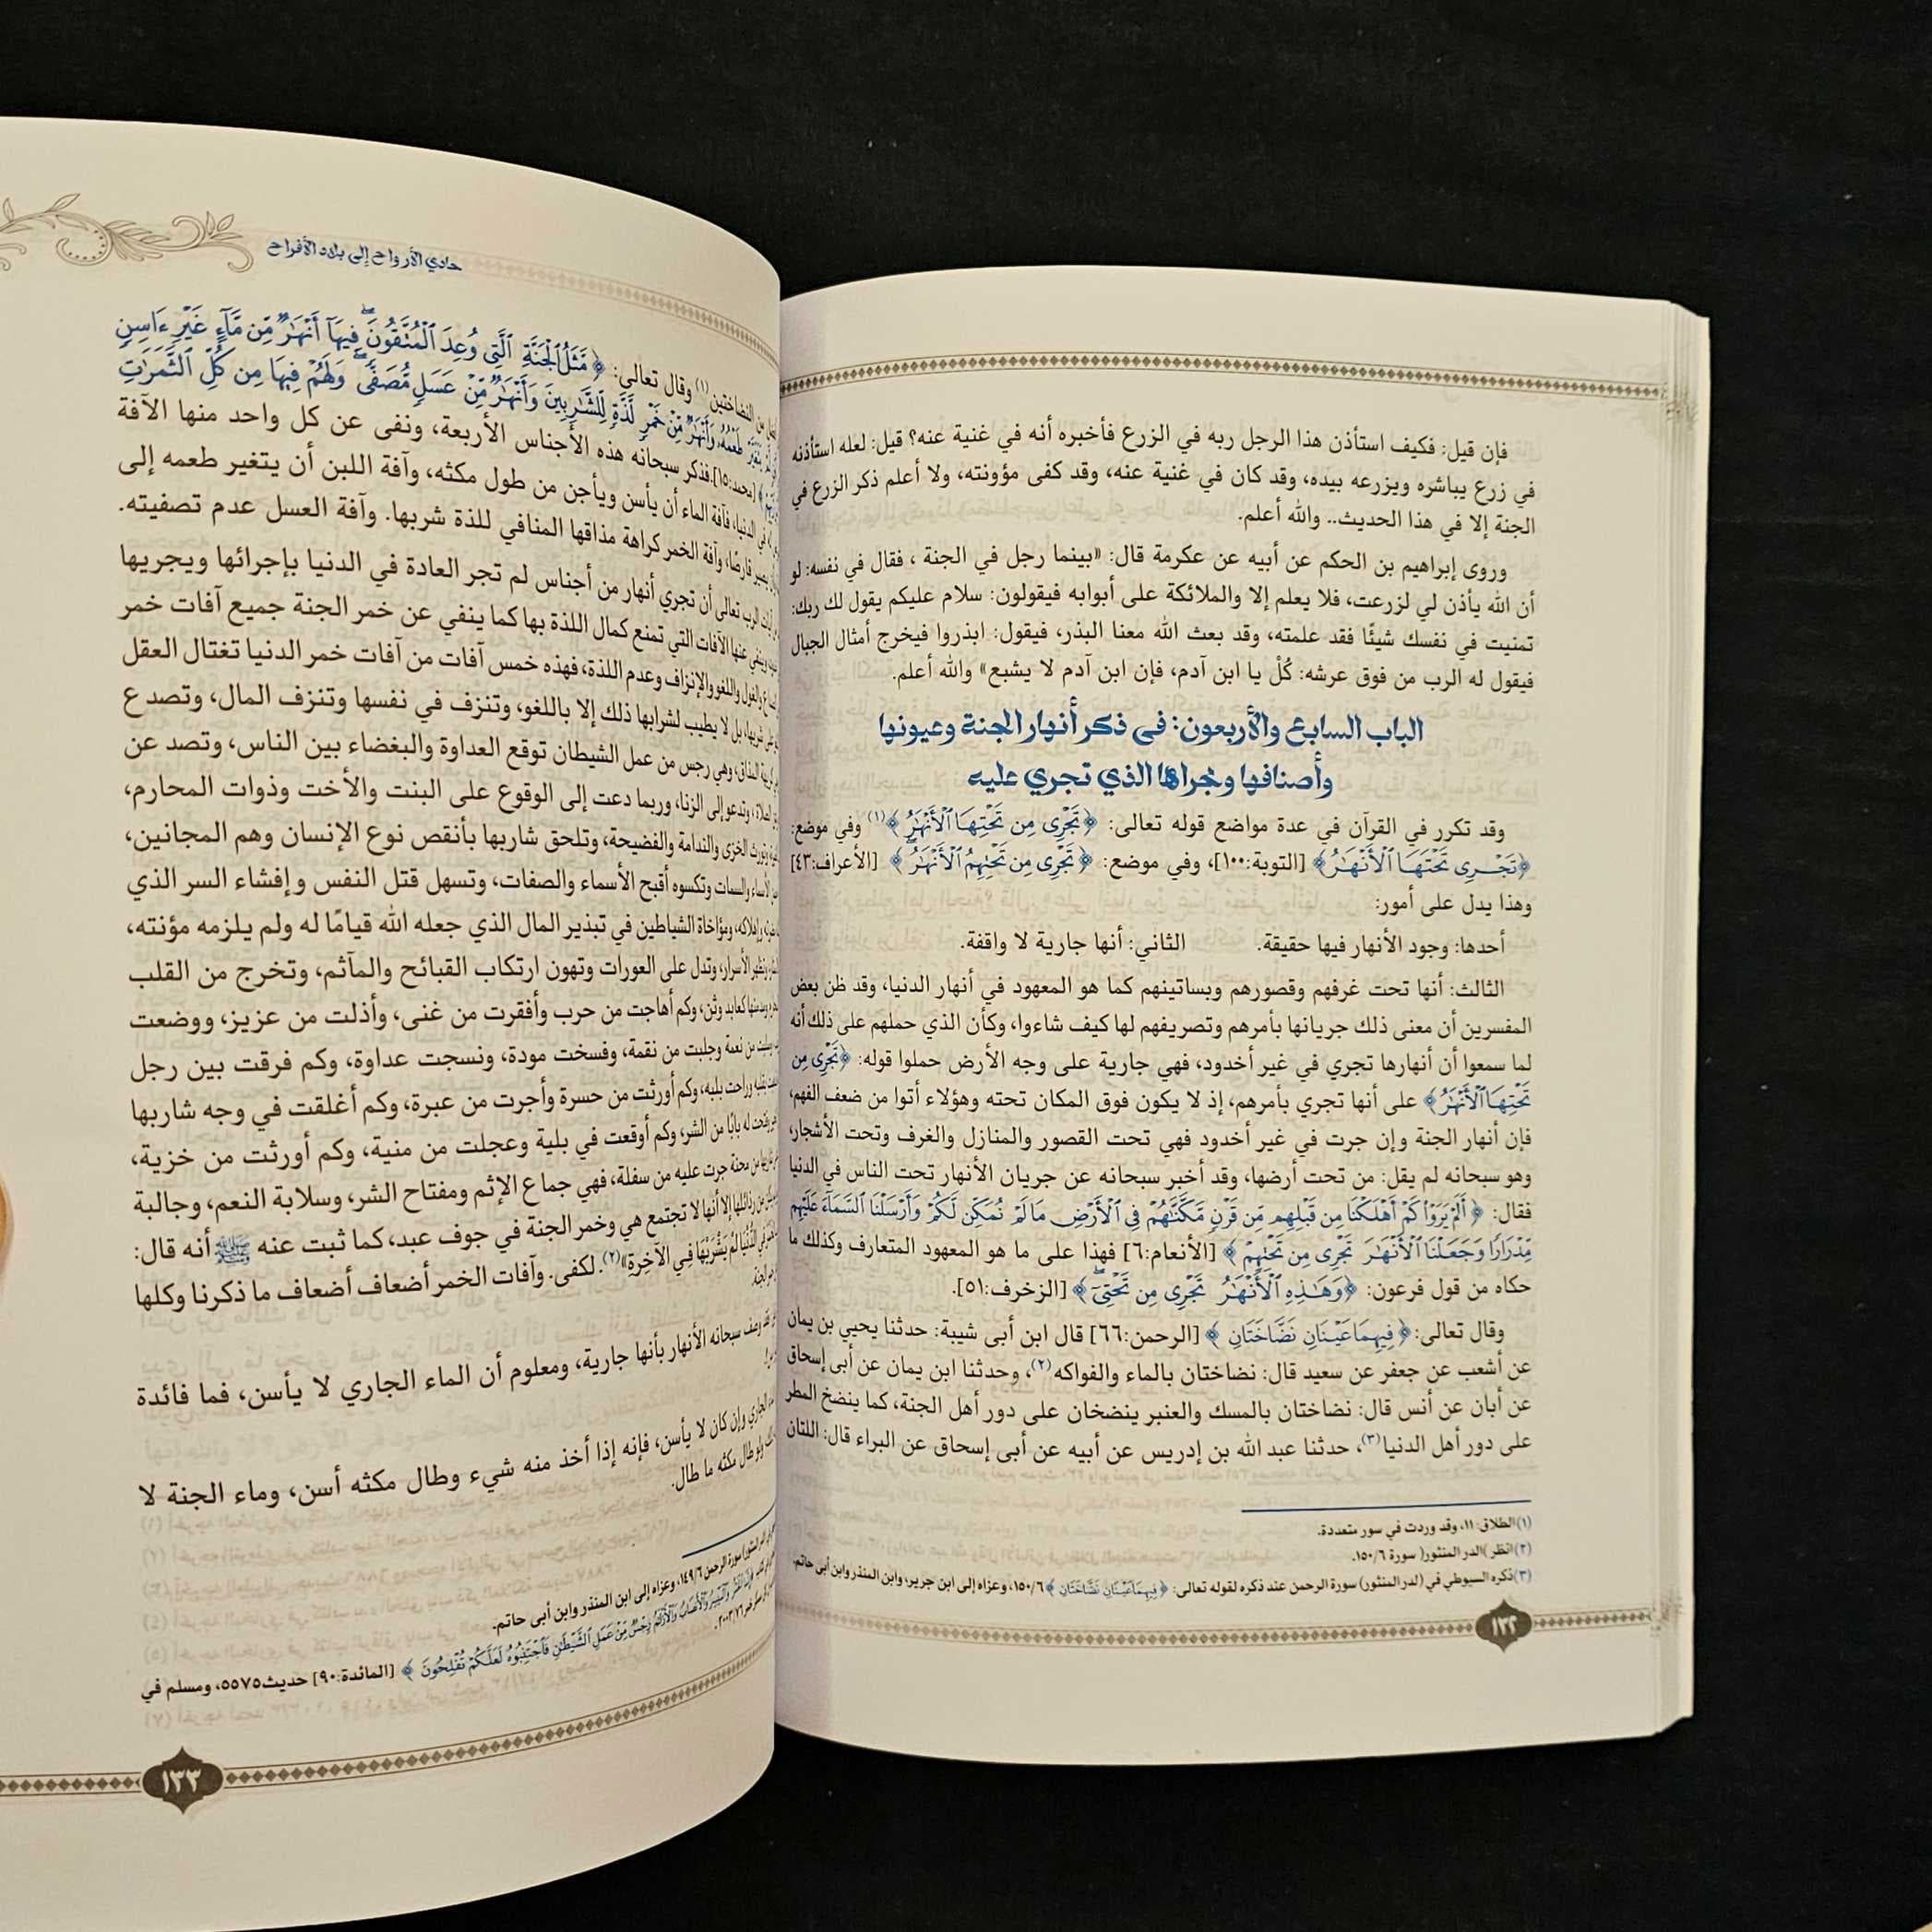 فإن قيل: فكيف استأذن هذا الرجل ربه في الزرع فأخبره أنه في غنية عنه؟ قيل: لعله استأذنه
في زرع يباشره ويزرعه بيده، وقد كان في غنية عنه، وقد كفى مؤونته، ولا أعلم ذكر الزرع في
الجنة إلا في هذا الحديث.. والله أعلم.
وروى إبراهيم بن الحكم عن أبيه عن عكرمة قال: «بينما رجل في الجنة ، فقال في نفسه: لو
أن الله يأذن لي لزرعت، فلا يعلم إلا والملائكة على أبوابه فيقولون: سلام عليكم يقول لك ربك:
تمنيت في نفسك شيئًا فقد علمته، وقد بعث الله معنا البذر، فيقول: ابذروا فيخرج أمثال الجبال
فيقول له الرب من فوق عرشه: كُلْ يا ابن آدم، فإن ابن آدم لا يشبع» والله أعلم.
الباب السابع والأربعون: في ذكر أنهار الجنة وعيونها
وأصنافها ومجراها الذي تجري عليه
وقد تكرر في القرآن في عدة مواضع قوله تعالى: ﴿تَجْرِى مِن تَحْتِهَا ٱلْأَنْهَٰرُ﴾(١) وفي موضع:
﴿تَجْرِى تَحْتَهَا ٱلْأَنْهَٰرُ﴾ [التوبة:١٠٠]، وفي موضع: ﴿تَجْرِى مِن تَحْتِهِمُ ٱلْأَنْهَٰرُ﴾ [الأعراف:٤٣]
وهذا يدل على أمور:
أحدها: وجود الأنهار فيها حقيقة. الثاني: أنها جارية لا واقفة.
الثالث: أنها تحت غرفهم وقصورهم وبساتينهم كما هو المعهود في أنهار الدنيا، وقد ظن بعض
المفسرين أن معنى ذلك جريانها بأمرهم وتصريفهم لها كيف شاءوا، وكأن الذي حملهم على ذلك أنه
لما سمعوا أن أنهارها تجري في غير أخدود، فهي جارية على وجه الأرض حملوا قوله: ﴿تَجْرِى مِن
تَحْتِهَا ٱلْأَنْهَٰرُ﴾ على أنها تجري بأمرهم، إذ لا يكون فوق المكان تحته وهؤلاء أتوا من ضعف الفهم،
فإن أنهار الجنة وإن جرت في غير أخدود فهي تحت القصور والمنازل والغرف وتحت الأشجار،
وهو سبحانه لم يقل: من تحت أرضها، وقد أخبر سبحانه عن جريان الأنهار تحت الناس في الدنيا
فقال: ﴿أَلَمْ يَرَوْا۟ كَمْ أَهْلَكْنَا مِن قَبْلِهِم مِّن قَرْنٍ مَّكَّنَّٰهُمْ فِى ٱلْأَرْضِ مَا لَمْ نُمَكِّن لَّكُمْ وَأَرْسَلْنَا ٱلسَّمَآءَ عَلَيْهِم
مِّدْرَارًا وَجَعَلْنَا ٱلْأَنْهَٰرَ تَجْرِى مِن تَحْتِهِمْ﴾ [الأنعام:٦] فهذا على ما هو المعهود المتعارف وكذلك ما
حكاه من قول فرعون: ﴿وَهَٰذِهِ ٱلْأَنْهَٰرُ تَجْرِى مِن تَحْتِىٓ﴾ [الزخرف:٥١].
وقال تعالى: ﴿فِيهِمَا عَيْنَانِ نَضَّاخَتَانِ﴾ [الرحمن:٦٦] قال ابن أبى شيبة: حدثنا يحيي بن يمان
عن أشعب عن جعفر عن سعيد قال: نضاختان بالماء والفواكه(٢)، وحدثنا ابن يمان عن أبى إسحاق
عن أبان عن أنس قال: نضاختان بالمسك والعنبر ينضخان على دور أهل الجنة، كما ينضخ المطر
على دور أهل الدنيا(٣)، حدثنا عبد الله بن إدريس عن أبيه عن أبى إسحاق عن البراء قال: اللتان
(١) الطلاق: ١١، وقد وردت في سور متعددة.
(٢) انظر )الدر المنثور( سورة ١٥٠/٦.
(٣) ذكره السيوطي في (لدر المنثور) سورة الرحمن عند ذكره لقوله تعالى: ﴿فِيهِمَا عَيْنَانِ نَضَّاخَتَانِ﴾ ١٥٠/٦، وعزاه إلى ابن جرير، وابن المنذر وابن أبى حاتم.
١٣٢
حادي الأرواح إلى بلاد الأفراح
من النضاختين(١) وقال تعالى: ﴿مَّثَلُ ٱلْجَنَّةِ ٱلَّتِى وُعِدَ ٱلْمُتَّقُونَ فِيهَآ أَنْهَٰرٌ مِّن مَّآءٍ غَيْرِ ءَاسِنٍ
طَعْمُهُۥ وَأَنْهَٰرٌ مِّنْ خَمْرٍ لَّذَّةٍ لِّلشَّٰرِبِينَ وَأَنْهَٰرٌ مِّنْ عَسَلٍ مُّصَفًّى وَلَهُمْ فِيهَا مِن كُلِّ ٱلثَّمَرَٰتِ
[محمد:١٥]. فذكر سبحانه هذه الأجناس الأربعة، ونفى عن كل واحد منها الآفة
في الدنيا، فآفة الماء أن يأسن ويأجن من طول مكثه، وآفة اللبن أن يتغير طعمه إلى
يصير قارصًا، وآفة الخمر كراهة مذاقها المنافي للذة شربها. وآفة العسل عدم تصفيته.
الرب تعالى أن تجري أنهار من أجناس لم تجر العادة في الدنيا بإجرائها ويجريها
وينفي عنها الآفات التي تمنع كمال اللذة بها كما ينفي عن خمر الجنة جميع آفات خمر
والغول واللغو والإنزاف وعدم اللذة، فهذه خمس آفات من آفات خمر الدنيا تغتال العقل
شربها، بل لا يطيب لشرابها ذلك إلا باللغو، وتنزف في نفسها وتنزف المال، وتصدع
المذاق، وهي رجس من عمل الشيطان توقع العداوة والبغضاء بين الناس، وتصد عن
الصلاة، وتدعو إلى الزنا، وربما دعت إلى الوقوع على البنت والأخت وذوات المحارم،
وتورث الخزى والندامة والفضيحة، وتلحق شاربها بأنقص نوع الإنسان وهم المجانين،
الأسماء والسمات وتكسوه أقبح الأسماء والصفات، وتسهل قتل النفس وإفشاء السر الذي
وإهلاكه، ومؤاخاة الشياطين في تبذير المال الذي جعله الله قيامًا له ولم يلزمه مؤنته،
وتظهر الأسرار، وتدل على العورات وتهون ارتكاب القبائح والمآثم، وتخرج من القلب
كعابد وثن، وكم أهاجت من حرب وأفقرت من غنى، وأذلت من عزيز، ووضعت
من نعمة وجلبت من نقمة، وفسخت مودة، ونسجت عداوة، وكم فرقت بين رجل
وراحت بلبه، وكم أورثت من حسرة وأجرت من عبرة، وكم أغلقت في وجه شاربها
وفتحت له بابًا من الشر، وكم أوقعت في بلية وعجلت من منية، وكم أورثت من خزية،
من محنة جرت عليه من سفلة، فهي جماع الإثم ومفتاح الشر، وسلابة النعم، وجالبة
من رذائلها إلا أنها لا تجتمع هي وخمر الجنة في جوف عبد، كما ثبت عنه ﷺ أنه قال:
فِي الدُّنْيَا لَمْ يَشْرَبْهَا فِي الآخِرَةِ»(٢). لكفى. وآفات الخمر أضعاف أضعاف ما ذكرنا وكلها
وصف سبحانه الأنهار بأنها جارية، ومعلوم أن الماء الجاري لا يأسن، فما فائدة
الجاري وإن كان لا يأسن، فإنه إذا أخذ منه شيء وطال مكثه أسن، وماء الجنة لا
ولو طال مكثه ما طال.
سورة الرحمن ١٤٩/٦، وعزاه إلى ابن المنذر وابن أبى حاتم.
وَٱلْأَنصَابُ وَٱلْأَزْلَٰمُ رِجْسٌ مِّنْ عَمَلِ ٱلشَّيْطَٰنِ فَٱجْتَنِبُوهُ لَعَلَّكُمْ تُفْلِحُونَ﴾ [المائدة:٩٠] حديث٥٥٧٥، ومسلم في
١٣٣